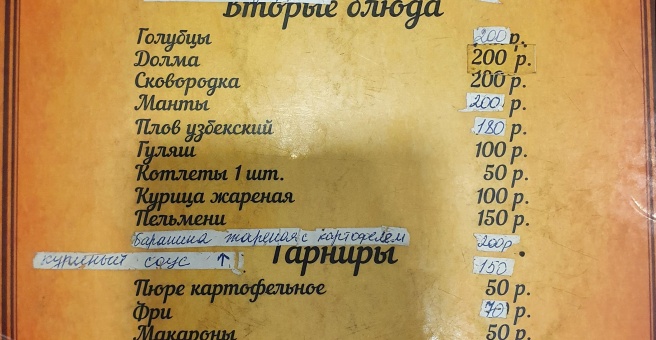 Вторые блюда
Голубцы 200 р.
Долма 200 р.
Сковородка 200 р.
Манты 200 р.
Плов узбекский 180 р.
Гуляш 100 р.
Котлеты 1 шт. 50 р.
Курица жареная 100 р.
Пельмени 150 р.
Баранина жареная с картофелем 200р.
куриный соус ↑ 150
Гарниры
Пюре картофельное 50 р.
Фри 70 р.
Макароны 50 р.